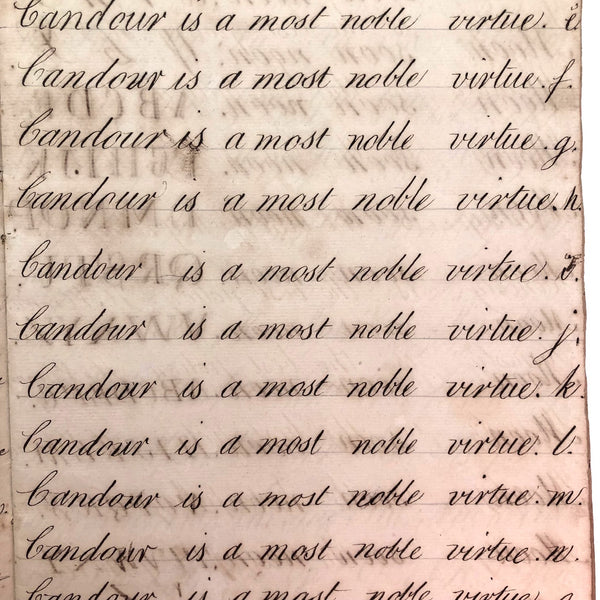 Candour is a most noble virtue. e
Candour is a most noble virtue. f.
Candour is a most noble virtue. g.
Candour is a most noble virtue. h.
Candour is a most noble virtue. i.
Candour is a most noble virtue. j.
Candour is a most noble virtue. k.
Candour is a most noble virtue. l.
Candour is a most noble virtue. m.
Candour is a most noble virtue. n.
Candour is a most noble virtue. o